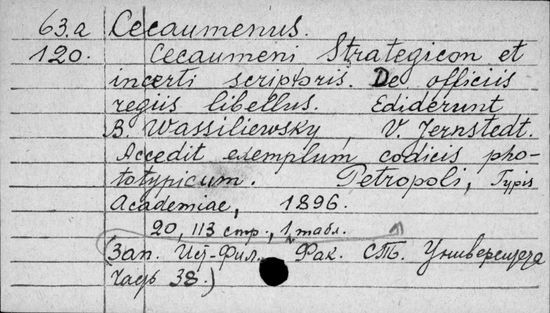 63.a Cecaumenus.
120. Cecaumeni Strategicon et
incerti scriptoris. De officiis
regiis libellus. Ediderunt
B. Wassiliewsky, V. Jernstedt.
Accedit exemplum codicis pho-
totypicum. Petropoli, Typis
Academiae, 1896.
20, 113 стр., 1 табл.
(Зап. Ист-Фил. Фак. СТб. Университета
Часть 38.)